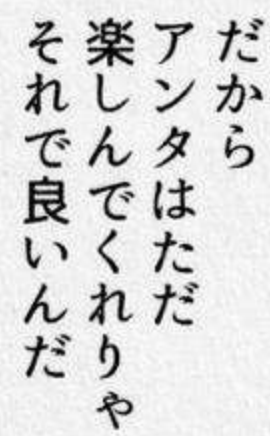 だから
アンタはただ
楽しんでくれりゃ
それで良いんだ